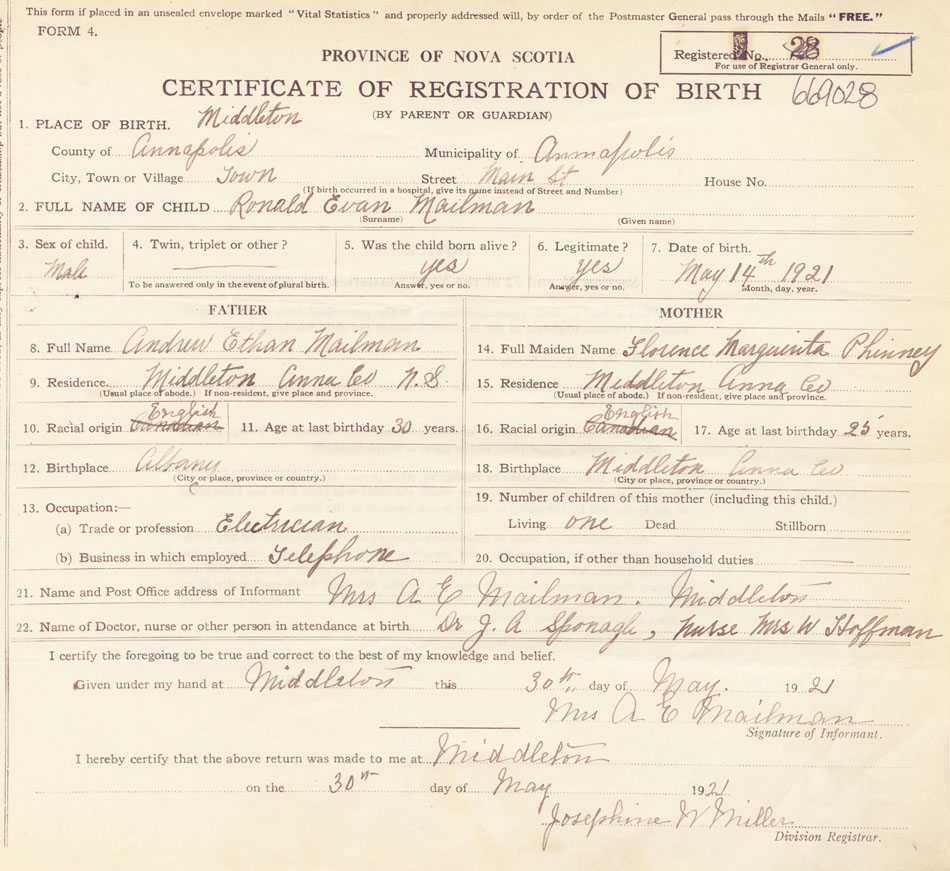 This form if placed in an unsealed envelope marked "Vital Statistics" and properly addressed will, by order of the Postmaster General pass through the Mails "FREE."
FORM 4.
PROVINCE OF NOVA SCOTIA
Registered No. 28
For use of Registrar General only.
CERTIFICATE OF REGISTRATION OF BIRTH 669028
(BY PARENT OR GUARDIAN)
1. PLACE OF BIRTH. Middleton
County of Annapolis Municipality of Annapolis
City, Town or Village Town Street Main St House No.
(If birth occurred in a hospital, give its name instead of Street and Number)
2. FULL NAME OF CHILD Ronald Evan Mailman
(Surname) (Given name)
3. Sex of child. 4. Twin, triplet or other? 5. Was the child born alive? 6. Legitimate? 7. Date of birth.
Male yes yes May 14th 1921
To be answered only in the event of plural birth. Answer, yes or no. Answer, yes or no. Month, day, year.
FATHER MOTHER
8. Full Name Andrew Ethan Mailman 14. Full Maiden Name Florence Marguerita Phinney
9. Residence Middleton Anna Co N.S 15. Residence Middleton Anna Co
(Usual place of abode.) If non-resident, give place and province. (Usual place of abode.) If non-resident, give place and province.
English English
10. Racial origin Canadian 11. Age at last birthday 30 years. 16. Racial origin Canadian 17. Age at last birthday 25 years.
12. Birthplace Albany 18. Birthplace Middleton Anna Co
(City or place, province or country.) (City or place, province or country.)
13. Occupation:— 19. Number of children of this mother (including this child.)
(a) Trade or profession Electrician Living one Dead Stillborn
(b) Business in which employed Telephone 20. Occupation, if other than household duties
21. Name and Post Office address of Informant Mrs A E Mailman. Middleton
22. Name of Doctor, nurse or other person in attendance at birth Dr J. A Sponagle, nurse Mrs W Hoffman
I certify the foregoing to be true and correct to the best of my knowledge and belief.
Given under my hand at Middleton this 30th day of May. 1921
Mrs A E Mailman
Signature of Informant.
I hereby certify that the above return was made to me at Middleton
on the 30th day of May 1921
Josephine W Miller
Division Registrar.